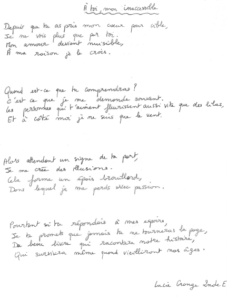 À toi mon inaccessible
Depuis que tu as pris mon cœur pour cible,
Je ne vois plus que par toi.
Mon amour devient nuisible,
À ma raison je le crois.
Quand est-ce que tu comprendras ?
C'est ce que je me demande souvent.
Les personnes qui t'aiment fleurissent aussi vite que des lilas,
Et à côté moi je ne suis que le vent.
Alors attendant un signe de ta part,
Je me crée des illusions.
Cela forme un épais brouillard,
Dans lequel je me perds avec passion.
Pourtant si tu répondais à mes espoirs,
Je te promets que jamais tu ne tourneras la page,
De beau livre qui racontera notre histoire,
Qui survivra même quand vieilliront nos âges.
Lucie Grange 2nde E